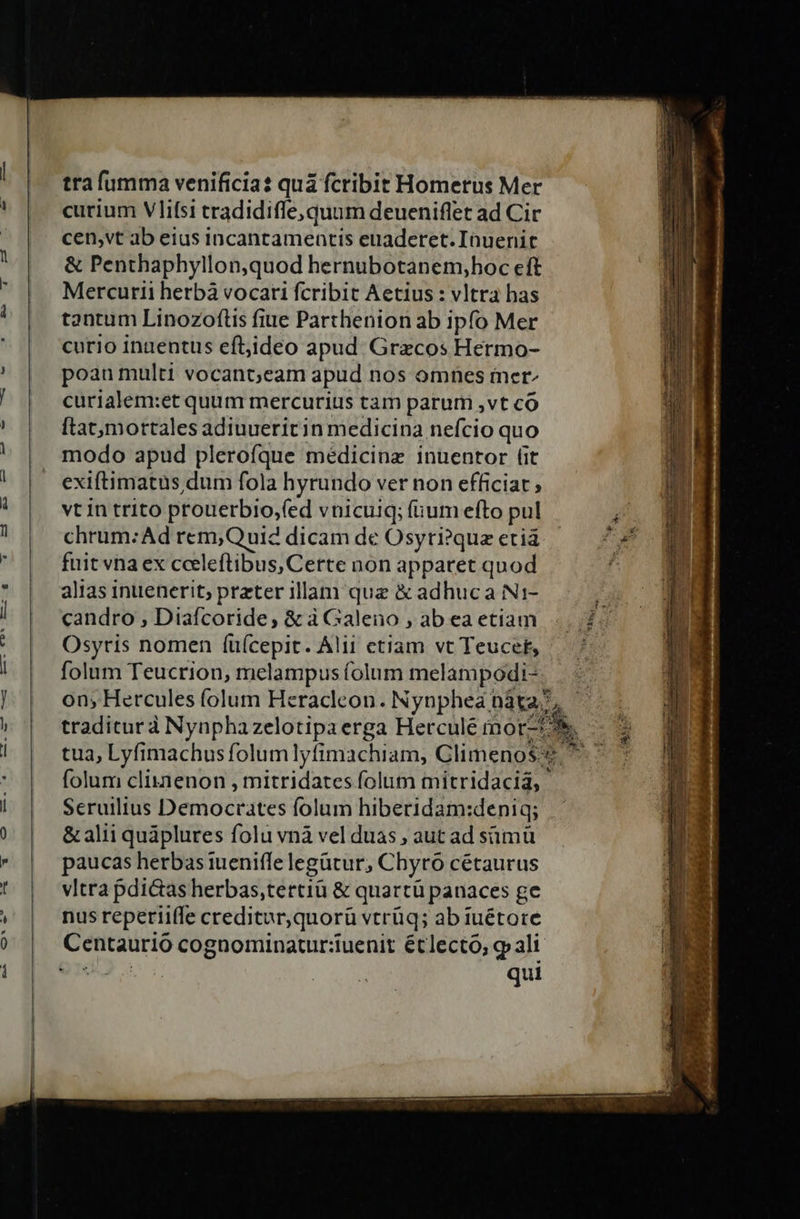 tra ſumma venificia: quã ſcribit Homerus Mer
curium Vliſsi tradidiſſe, quum deueniſſet ad Cir
cen, vt ab eius incantamentis euaderet. Inuenit
& Penthaphyllon, quod hernubotanem, hoc eſt
Mercurii herbã vocari ſcribit Aetius : vltra has
tantum Linozoſtis ſiue Parthenion ab ipſo Mer
curio inuentus eſt, ideo apud Græcos Hermo-
poan multi vocant, eam apud nos omnes mer-
curialem: et quum mercurius tam parum , vt cõ
ſtat, mortales adiuuerit in medicina neſcio quo
modo apud pleroſque medicinæ inuentor ſit
exiſtimatus, dum ſola hyrundo ver non efficiat ,
vt in trito prouerbio, ſed vnicuiq; ſuum eſto pul
chrum: Ad rem, Quid dicam de Osyri? quæ etiã
fuit vna ex cœleſtibus, Certe non apparet quod
alias inuenerit, præter illam quæ & adhuc a Ni-
candro , Diaſcoride, & à Galeno , ab ea etiam
Osyris nomen ſuſcepit. Alii etiam vt Teucer,
ſolum Teucrion, melampus ſolum melampodi-
on, Hercules ſolum Heracleon. Nynphea nata,
traditur à Nynpha zelotipa erga Herculẽ mor-
tua, Lyſimachus ſolum lyſimachiam, Climenos
ſolum climenon , mitridates ſolum mitridaciã,
Seruilius Democrates ſolum hiberidam: deniq;
& alii quãplures ſolũ vnã vel duas , aut ad sũmũ
paucas herbas iueniſſe legũtur, Chyrõ cẽtaurus
vltra p̃dictas herbas, tertiũ & quartũ panaces ge
nus reperiiſſe creditur, quorũ vtrũq; ab ĩuẽtore
Centauriõ cognominatur: ĩuenit ẽt lectõ, ꝙ ali
qui